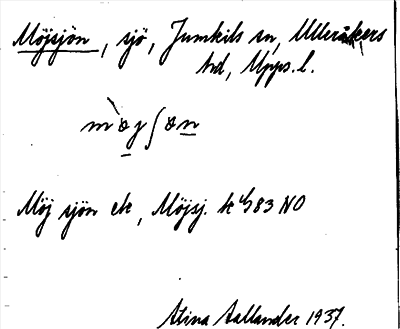 Möjsjön, sjö, Jumkils sn, Ulleråkers
hd, Upps. l.
mø̀jʃøn
Möj sjön ek, Möjsj. k 4/983 NO
Stina Aallander 1937.